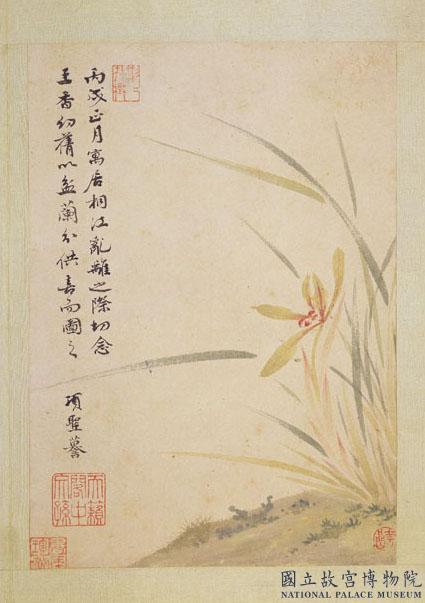 丙戌正月寓居桐江亂離之際切念
王香幻舊以盆蘭分供喜而圖之
項聖謩
天籟閣中文孫
國立故宮博物院
NATIONAL PALACE MUSEUM